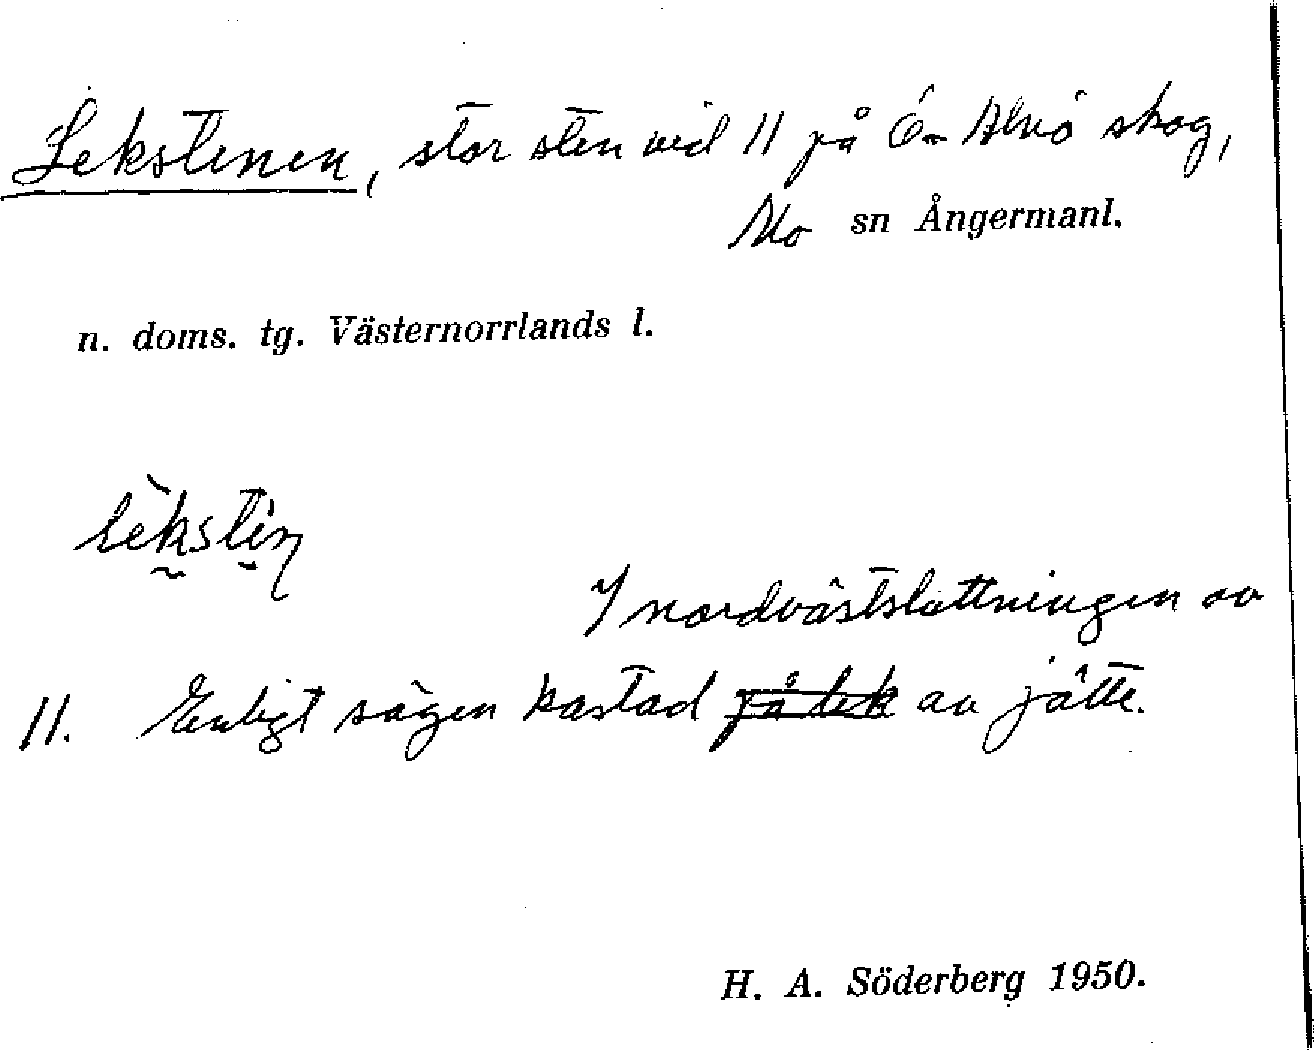 Lekstenen, stor sten vid 11 på Ö. skog,
Mo sn Ångermanl.
n. doms. tg. Västernorrlands l.
I nordvästslättningen av
11. Enligt sägen kastad på lek av jätte.
H. A. Söderberg 1950.